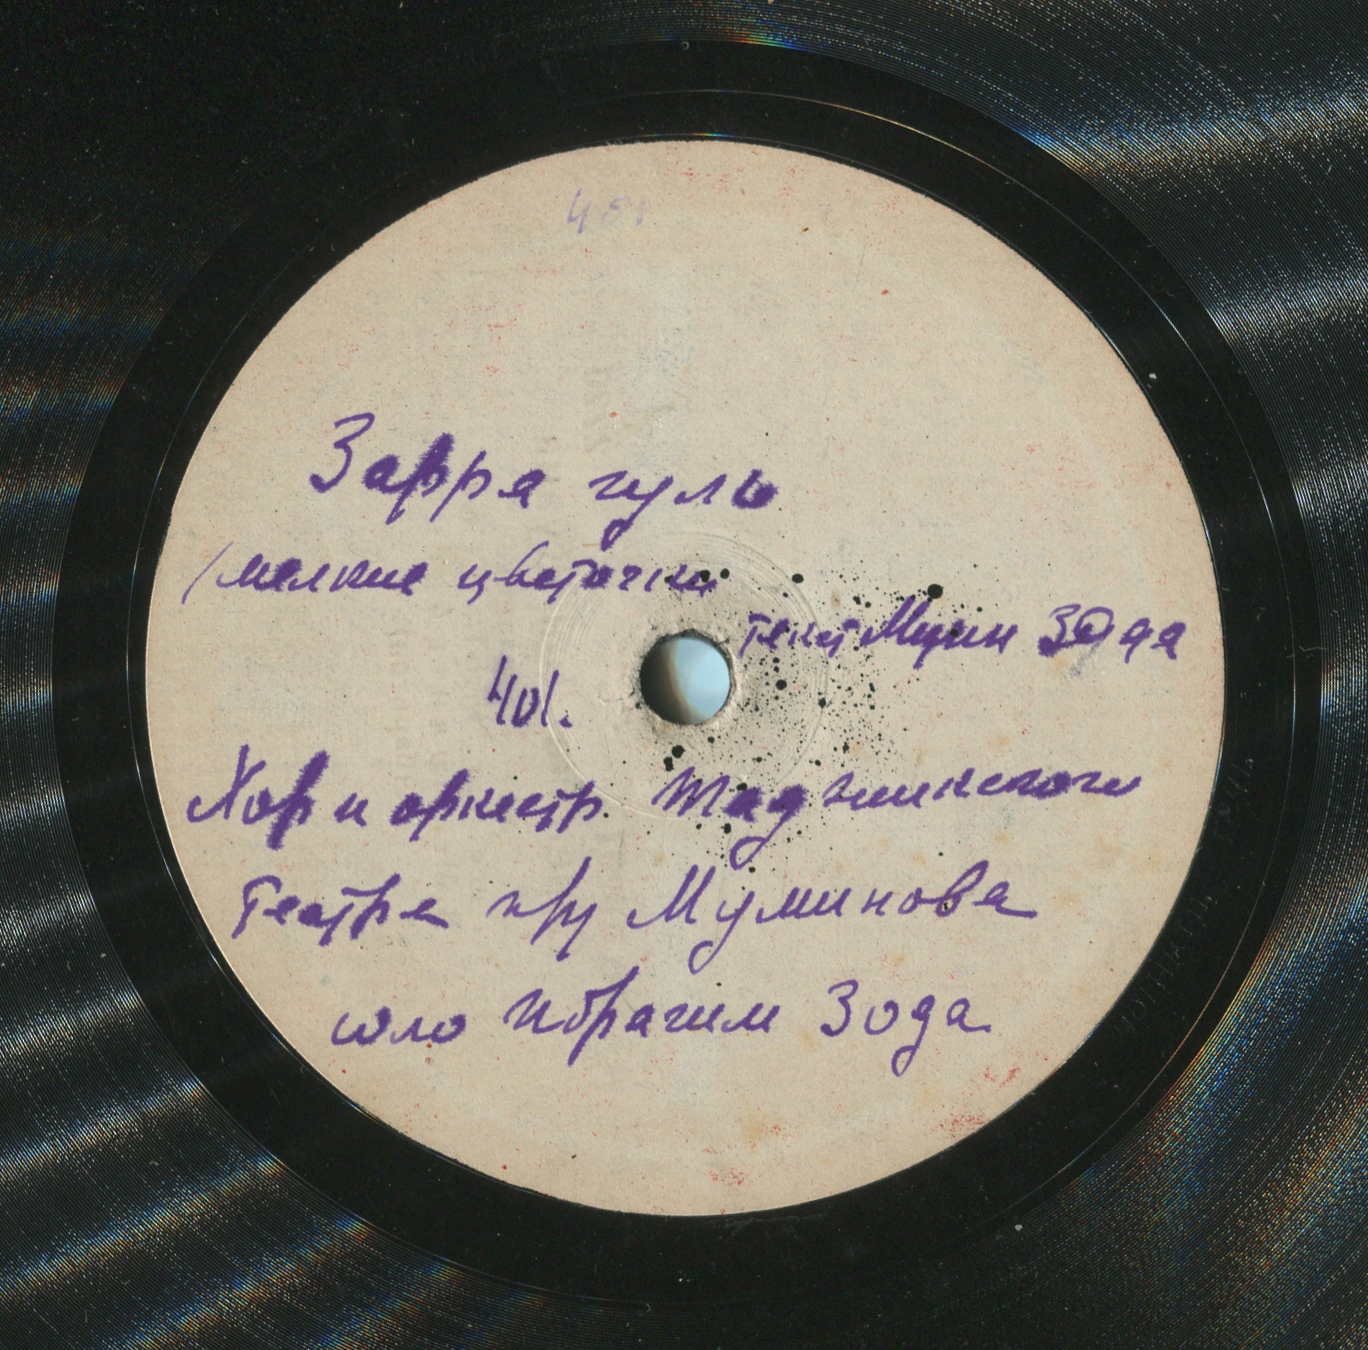 Зарра гуль
/мелкие цветочки
текст Мумин Зода
401.
Хор и оркестр Таджикского
Театра п/у Муминова
соло Ибрагим Зода